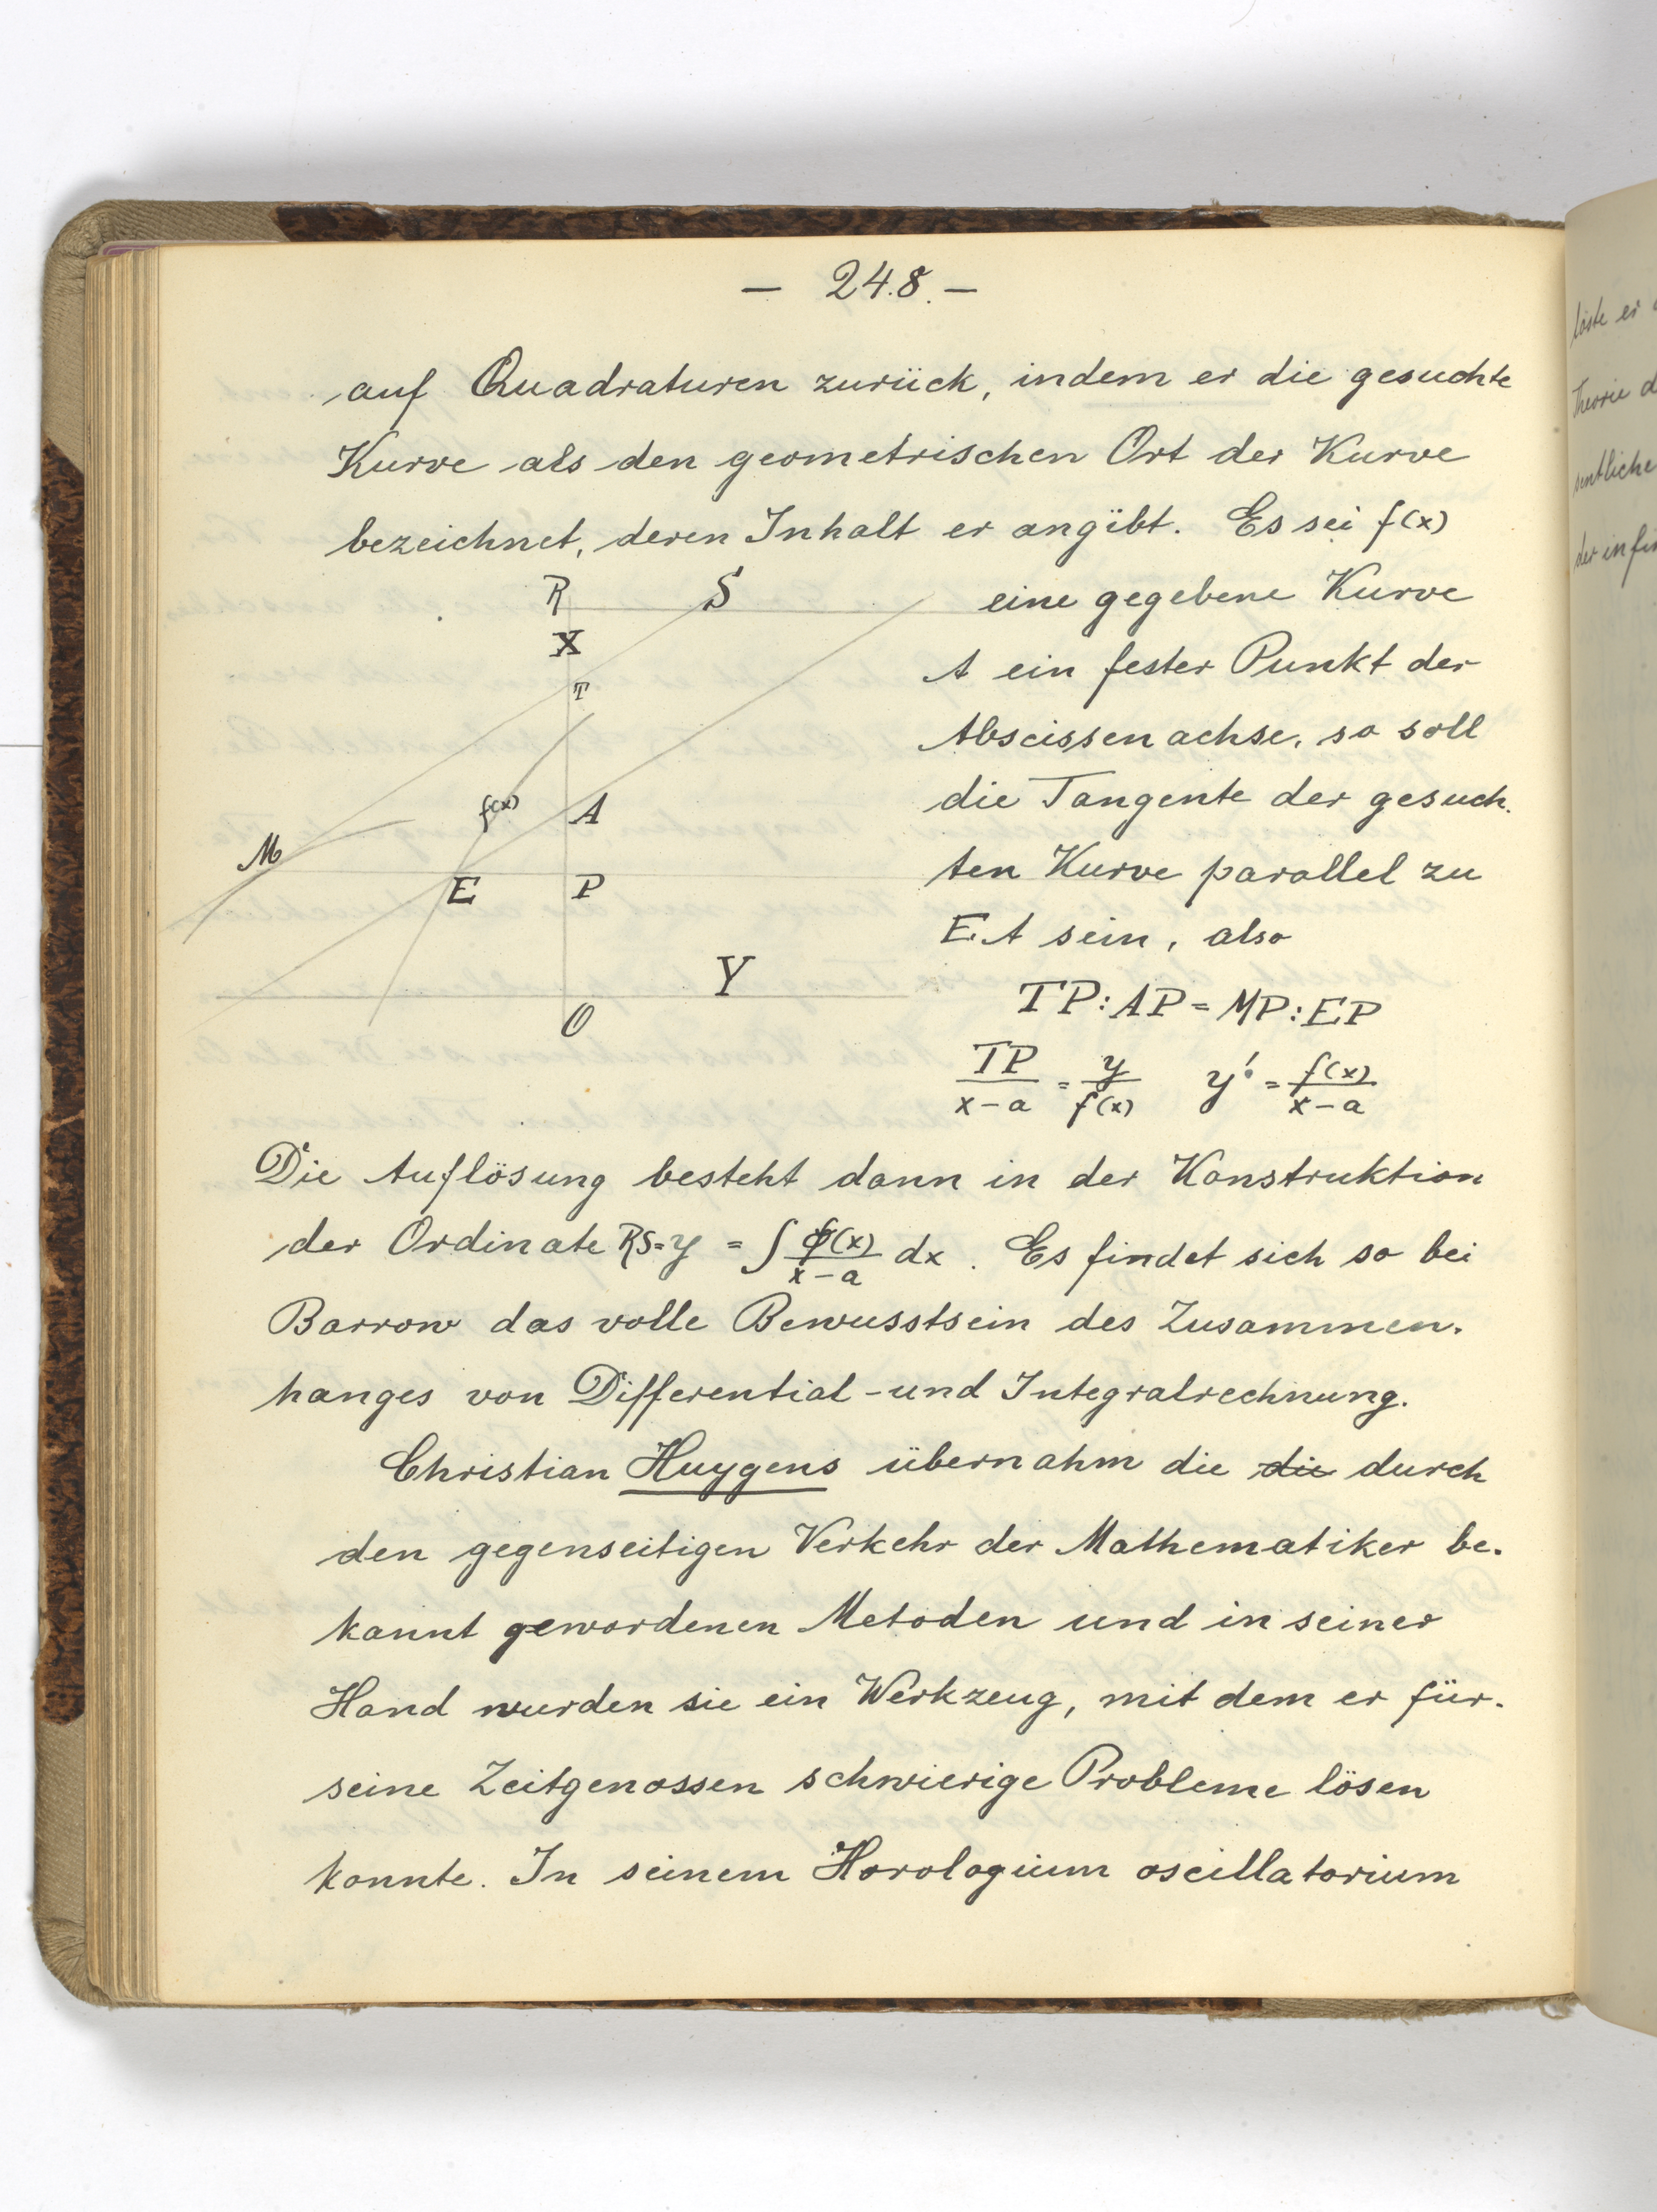 — 248. —
auf Quadraturen zurück, indem er die gesuchte
Kurve als den geometrischen Ort der Kurve
bezeichnet, deren Inhalt er angibt. Es sei f(x)
eine gegebene Kurve
A ein fester Punkt der
Abscissenachse, so soll
die Tangente der gesuch-
ten Kurve parallel zu
EA sein, also
TP : AP = MP : EP
TP/(x-a) = y/f(x)   y' = f(x)/(x-a)
R S
X
T
f(x) A
M
E P
Y
O
Die Auflösung besteht dann in der Konstruktion
der Ordinate RS = y = ∫ f(x)/(x-a) dx. Es findet sich so bei
Barrow das volle Bewusstsein des Zusammen-
hanges von Differential- und Integralrechnung.
Christian Huygens übernahm die die durch
den gegenseitigen Verkehr der Mathematiker be-
kannt gewordenen Metoden und in seiner
Hand wurden sie ein Werkzeug, mit dem er für
seine Zeitgenossen schwierige Probleme lösen
konnte. In seinem Horologium oscillatorium
löste er
Theorie d
sentliche
der infin